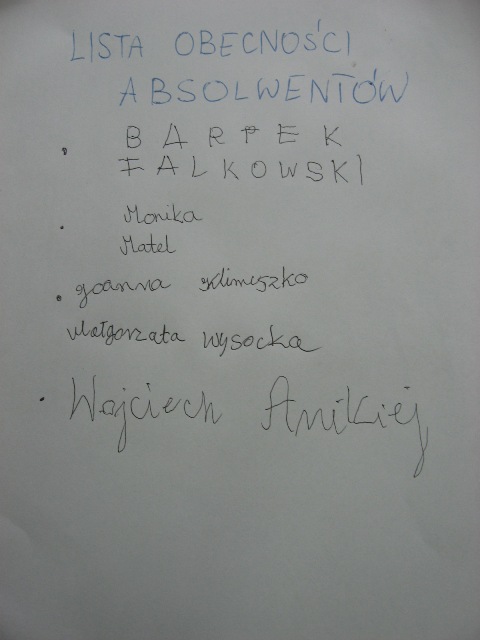 LISTA OBECNOŚCI
ABSOLWENTÓW
BARTEK
FALKOWSKI
Monika
Matel
Joanna Klimeszko
Małgorzata Wysocka
Wojciech Anikiej